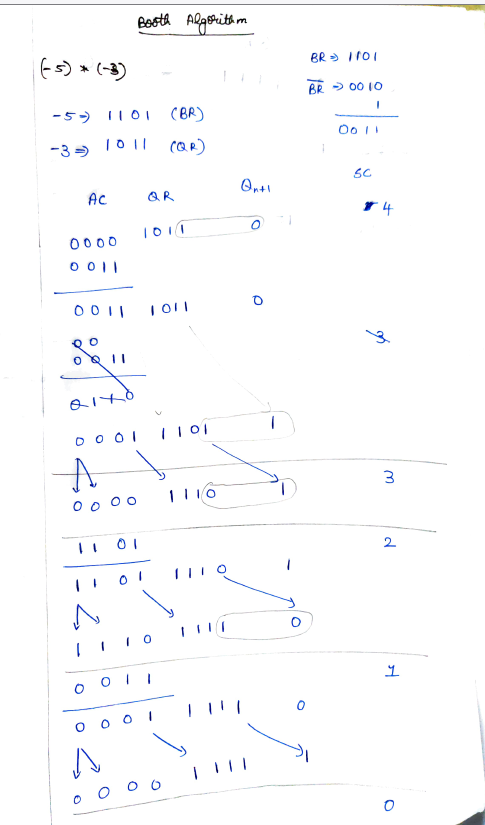 Booth Algorithm
(-5) * (-3)
BR ⇒ 1101
B̅R̅ ⇒ 0010
1
0011
-5 ⇒ 1101 (BR)
-3 ⇒ 1011 (QR)
AC QR Qn+1 SC
0000 1011 0 4
0011
0011 1011 0
00
3
0011
0001 1101 1
0000 1110 1 3
1101 2
1101 1110 1
1110 1111 0
0011 1
0001 1111 0
0000 1111 1
0